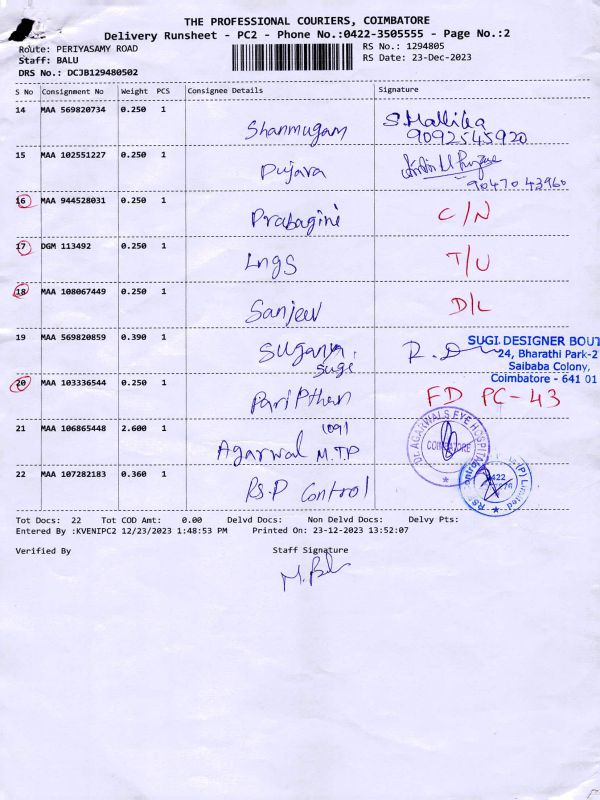 THE PROFESSIONAL COURIERS, COIMBATORE
Delivery Runsheet - PC2 - Phone No.:0422-3505555 - Page No.:2
Route: PERIYASAMY ROAD
RS No.: 1294805
Staff: BALU
RS Date: 23-Dec-2023
DRS No.: DCJB129480502
S No Consignment No Weight PCS Consignee Details Signature
14 MAA 569820734 0.250 1 Shanmugam S.Mallika
9092545920
15 MAA 102551227 0.250 1 Pujara
9047043960
16 MAA 944528031 0.250 1 Prabagini C/N
17 DGM 113492 0.250 1 Lngs T/U
18 MAA 108067449 0.250 1 Sanjeev D/L
19 MAA 569820859 0.390 1 Suganya, R.D
Suge
SUGI DESIGNER BOUT
24, Bharathi Park-2
Saibaba Colony,
Coimbatore - 641 01
20 MAA 103336544 0.250 1 PariPthan FD PC-43
21 MAA 106865448 2.600 1 Agarwal 1091 M.TP
DR. AGARWALS EYE HOSPITAL
COIMBATORE
22 MAA 107282183 0.360 1 Rs.P Control
(P) Limited
Tot Docs: 22 Tot COD Amt: 0.00 Delvd Docs: Non Delvd Docs: Delvy Pts:
Entered By :KVENIPC2 12/23/2023 1:48:53 PM Printed On: 23-12-2023 13:52:07
Verified By Staff Signature